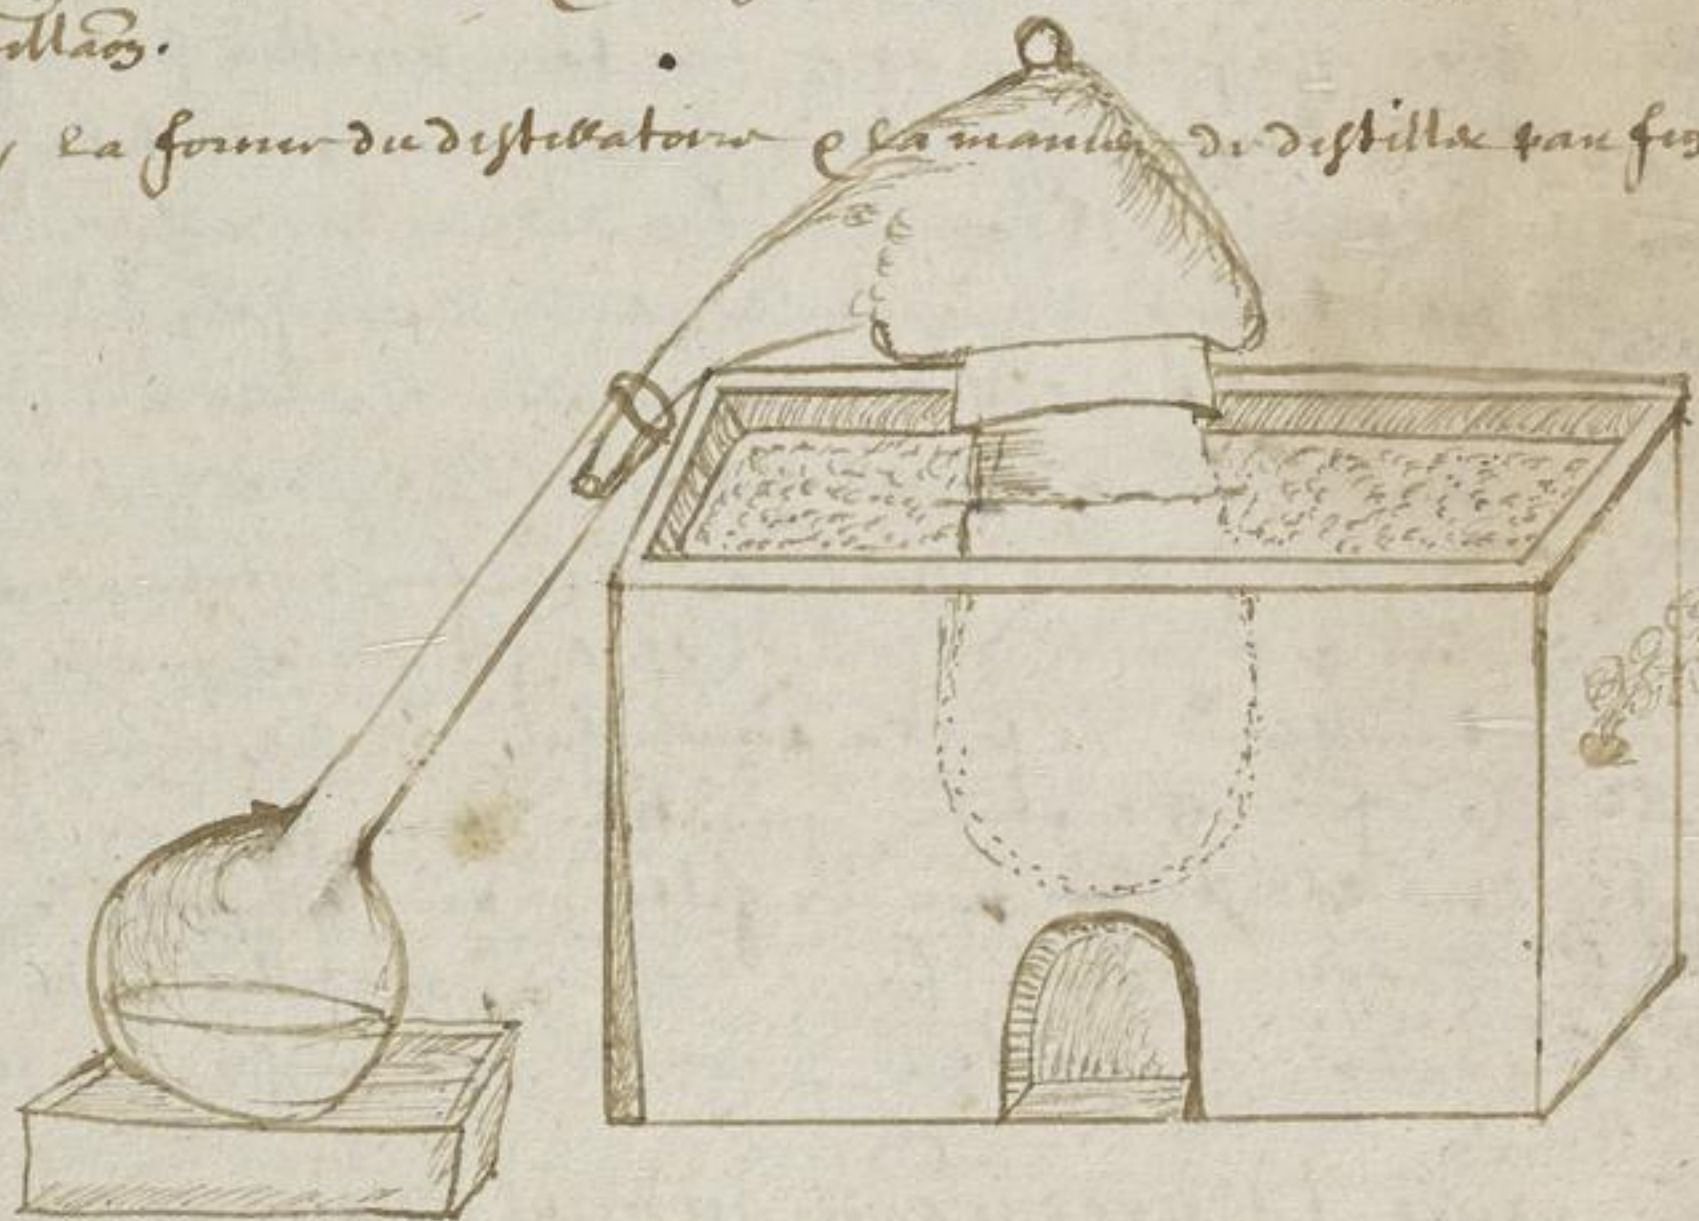 illaõn.
la forme du distillatoire & la maniere de distiller par